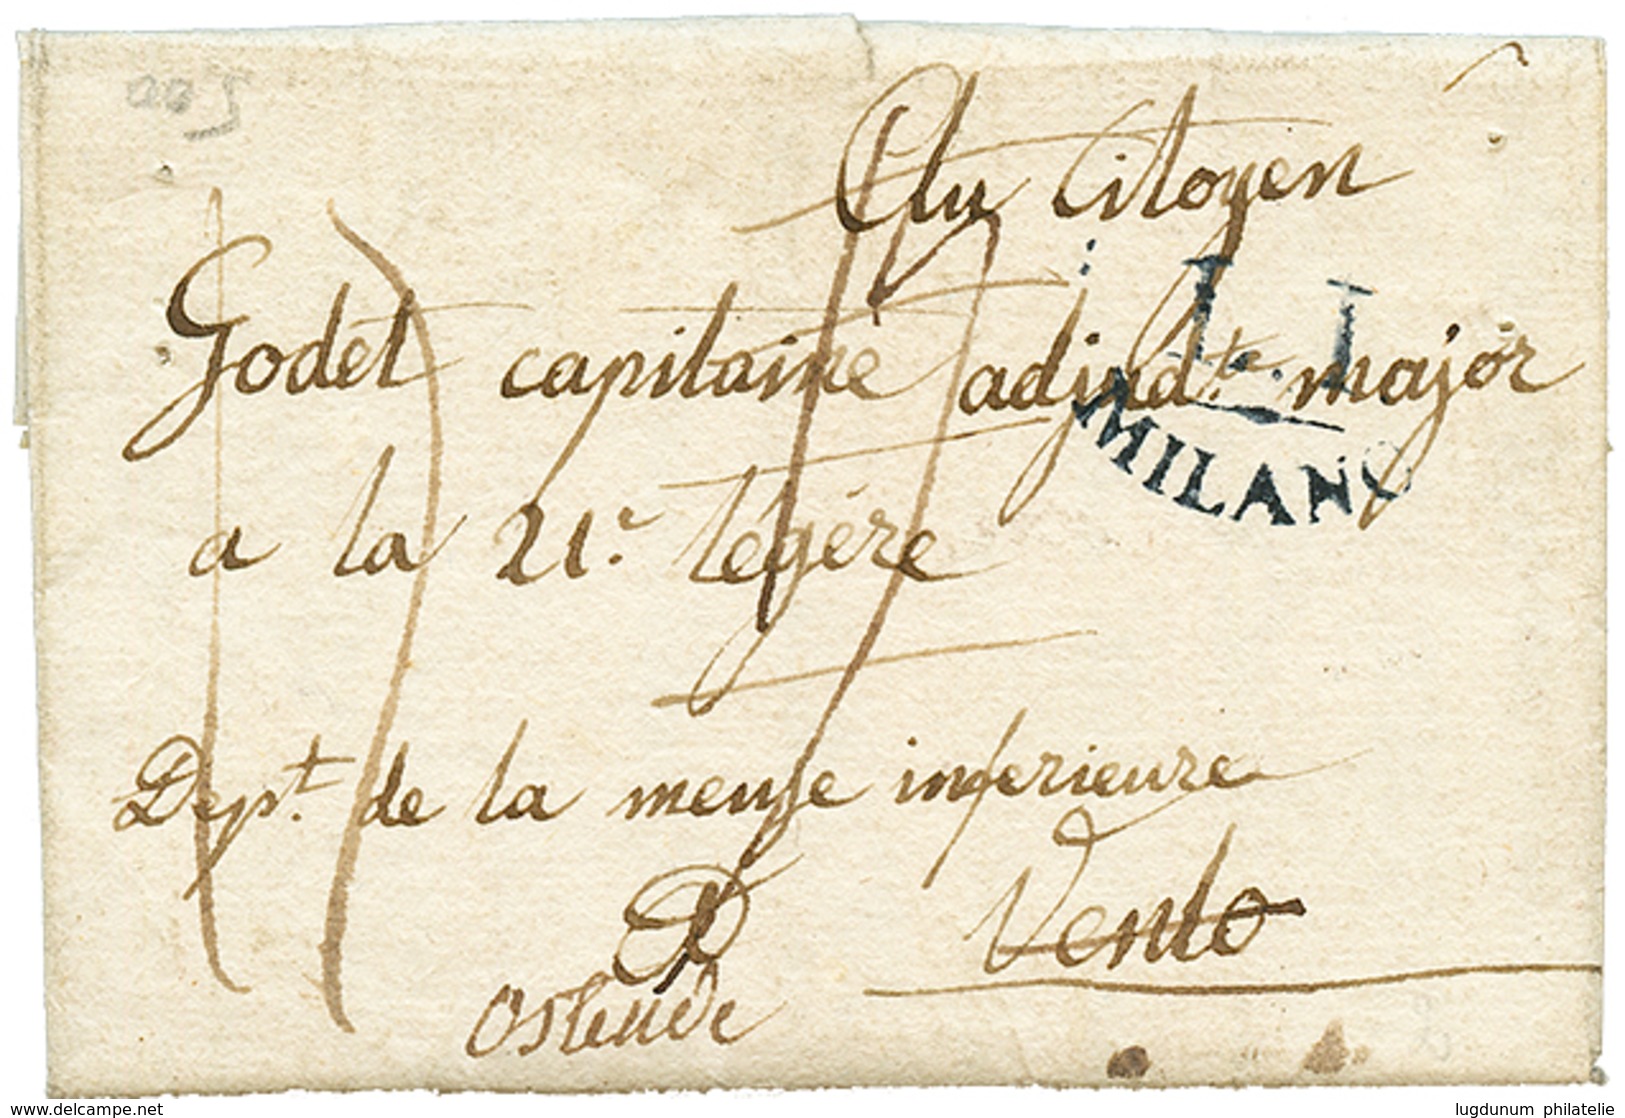 Au Citoyen
Godet capitaine adjudte. major
L. I
MILANO
a la 21e légére
Dept. de la meuse inferieure
A Venlo
Ostende
www.delcampe.net
lugdunum philatelie